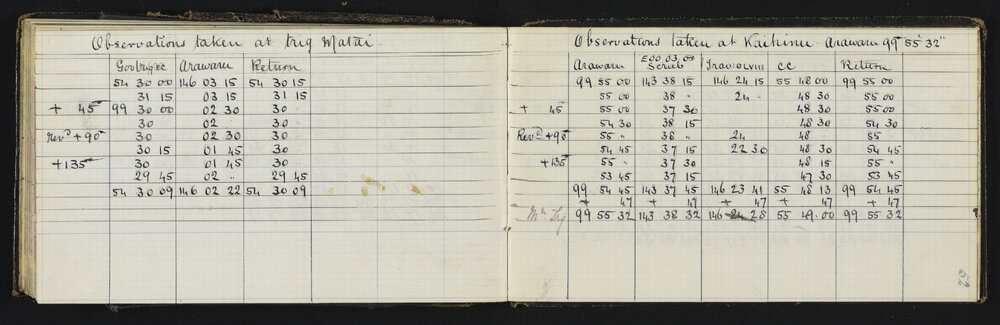 Observations taken at trig Matai.
Arawaru Return
54 30 00 146 03 15 54 30 15
31 15 03 15 31 15
+ 45 99 30 00 02 30 30 "
30 02 " 30
Rev'd + 90 30 02 30 30
30 15 01 45 30
+135 30 01 45 30
29 45 02 " 29 45
54 30 09 146 02 22 54 30 09
Observations taken at Kaihinu - Arawaru 99 55' 32"
Arawaru E00 03,00 Scrub cc Return
99 55 00 143 38 15 146 24 15 55 48 00 99 55 00
55 00 38 " 24 " 48 30 55 00
+ 45 55 00 37 30 48 30 55 00
54 30 38 15 48 30 54 30
Rev'd +90 55 " 38 " 24 48 " 55
54 45 37 15 22 30 48 30 54 45
+135 55 " 37 30 48 15 55 "
53 45 37 15 47 30 53 45
99 54 45 143 37 45 146 23 41 55 48 13 99 54 45
+ 47 + 47 + 47 + 47 + 47
99 55 32 143 38 32 146 24 28 55 49 00 99 55 32
52